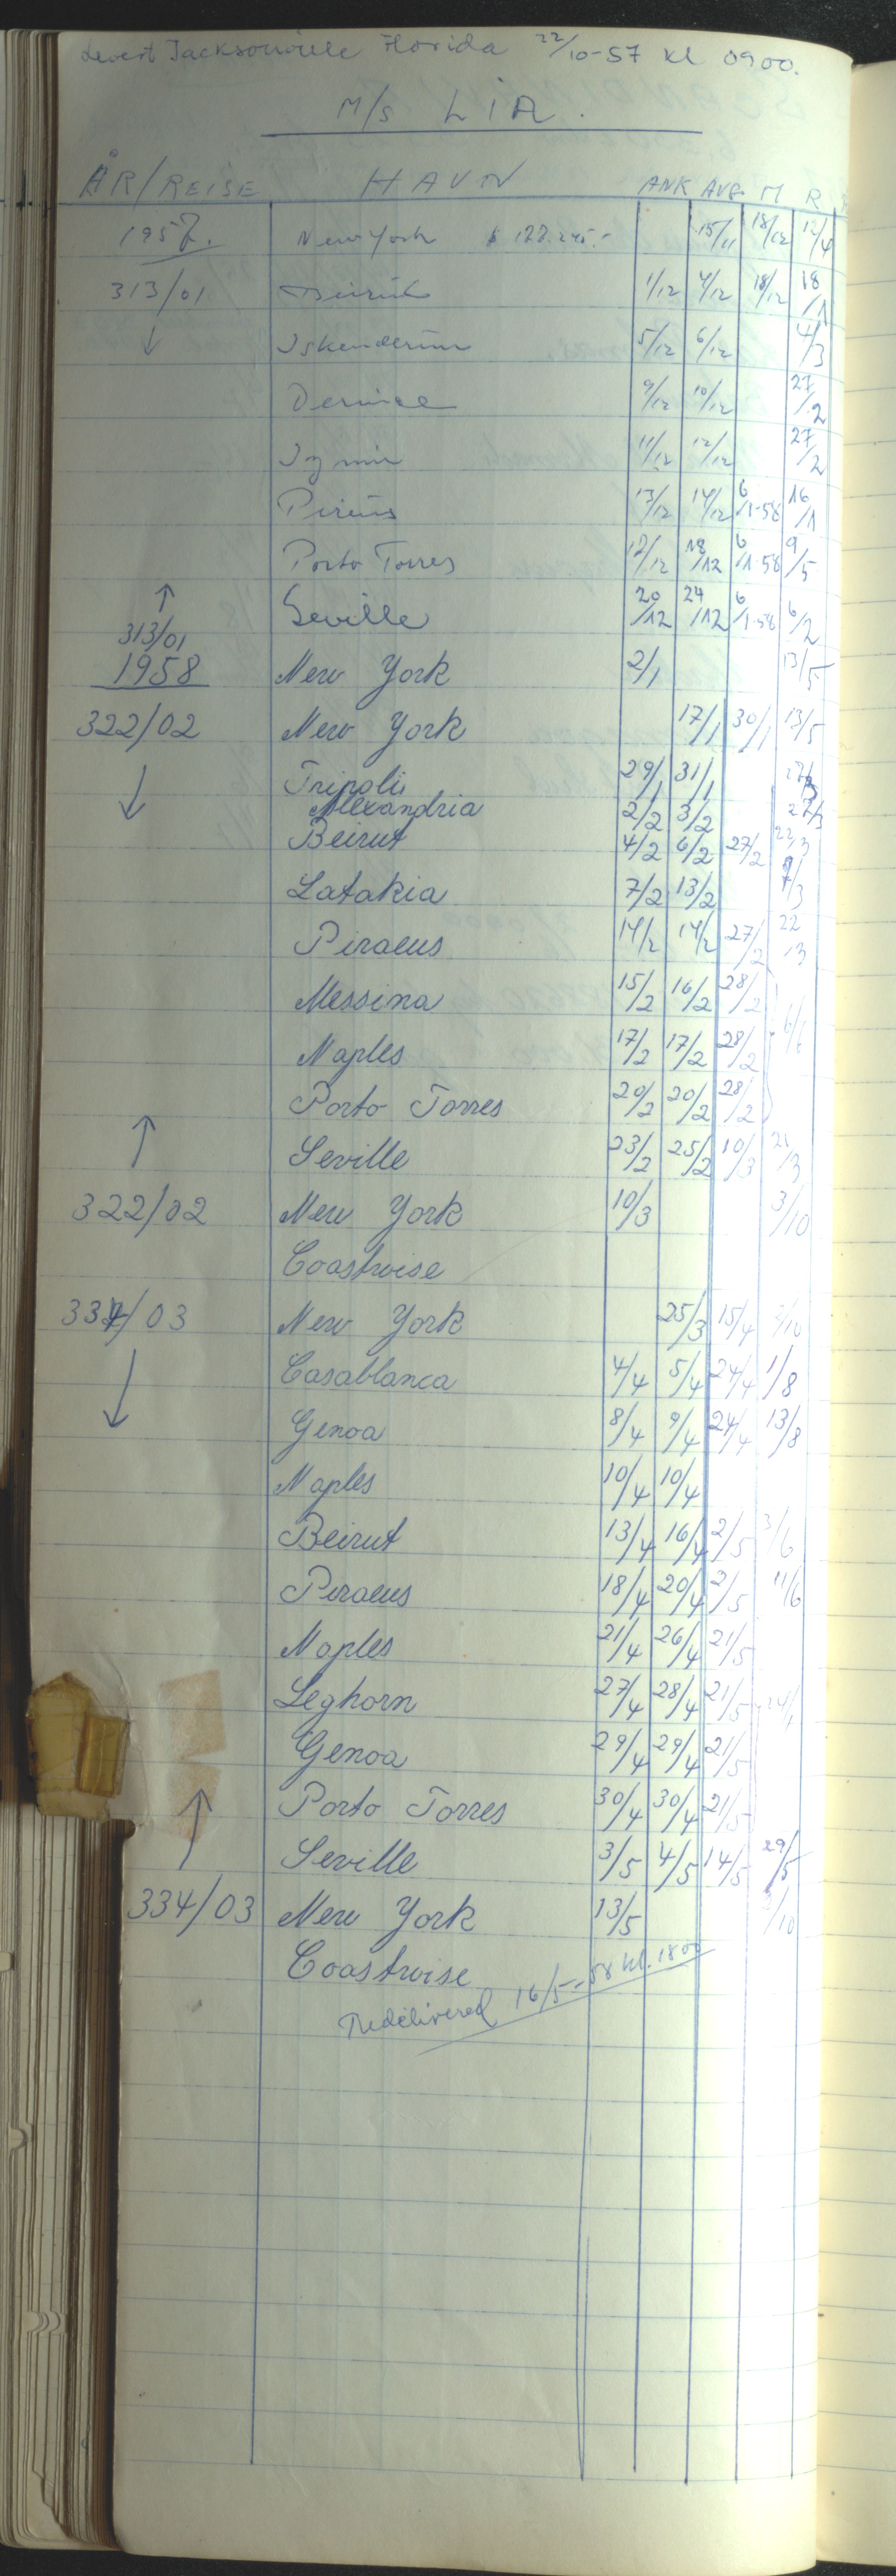 Levert Jacksonville Florida 22/10-57 kl 0900.
M/S LIA.
ÅR/REISE HAVN ANK AVG. M R
1957. New York $ 15/11 18/12 12/4
313/01 Beirut 1/12 4/12 18/12 18/1
↓ Iskenderun 5/12 6/12 4/3
Derince 9/12 10/12 27/2
Izmir 11/12 12/12 27/2
Pireus 13/12 14/12 6/1-58 16/1
Porto Torres 17/12 18/12 6/1-58 9/5
↑ Seville 20/12 24/12 6/1-58 6/2
313/01
1958 New York 2/1 13/5
322/02 New York 17/1 30/1 13/5
↓ Tripoli 29/1 31/1
Alexandria 2/2 3/2 27/3
Beirut 4/2 6/2 27/2 22/3
Latakia 7/2 13/2
Piraeus 14/2 14/2 27/2 22/3
Messina 15/2 16/2 28/2
Naples 17/2 17/2 28/2 6/6
Porto Torres 20/2 20/2 28/2
↑ Seville 23/2 25/2 10/3 21/3
322/02 New York 10/3 3/10
Coastwise
334/03 New York 25/3 15/4 3/10
↓ Casablanca 4/4 5/4 24/4 1/8
Genoa 8/4 9/4 24/4 13/8
Naples 10/4 10/4
Beirut 13/4 16/4 2/5 3/6
Piraeus 18/4 20/4 2/5 11/6
Naples 21/4 26/4 21/5
Leghorn 27/4 28/4 21/5
Genoa 29/4 29/4 21/5
↑ Porto Torres 30/4 30/4 21/5
Seville 3/5 4/5 14/5 29/5
334/03 New York 13/5 3/10
Coastwise
Redelivered 16/5-58 kl. 1800